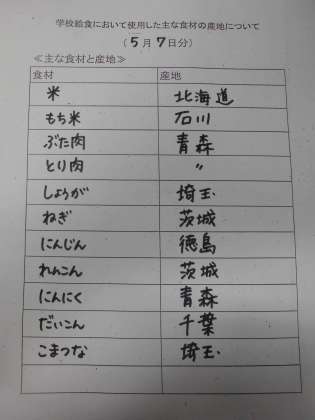 学校給食において使用した主な食材の産地について
（5月7日分）
≪主な食材と産地≫
食材 産地
米 北海道
もち米 石川
ぶた肉 青森
とり肉 〃
しょうが 埼玉
ねぎ 茨城
にんじん 徳島
れんこん 茨城
にんにく 青森
だいこん 千葉
こまつな 埼玉